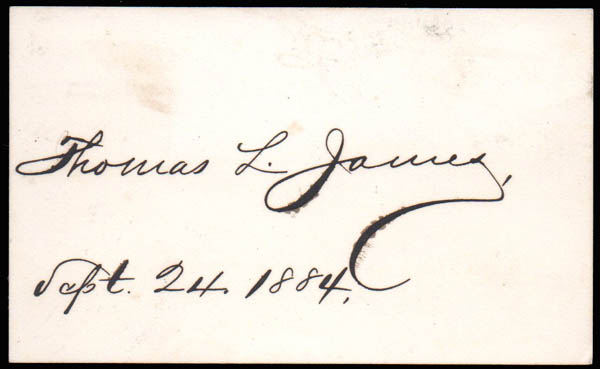 Thomas L. James,
Sept. 24. 1884,